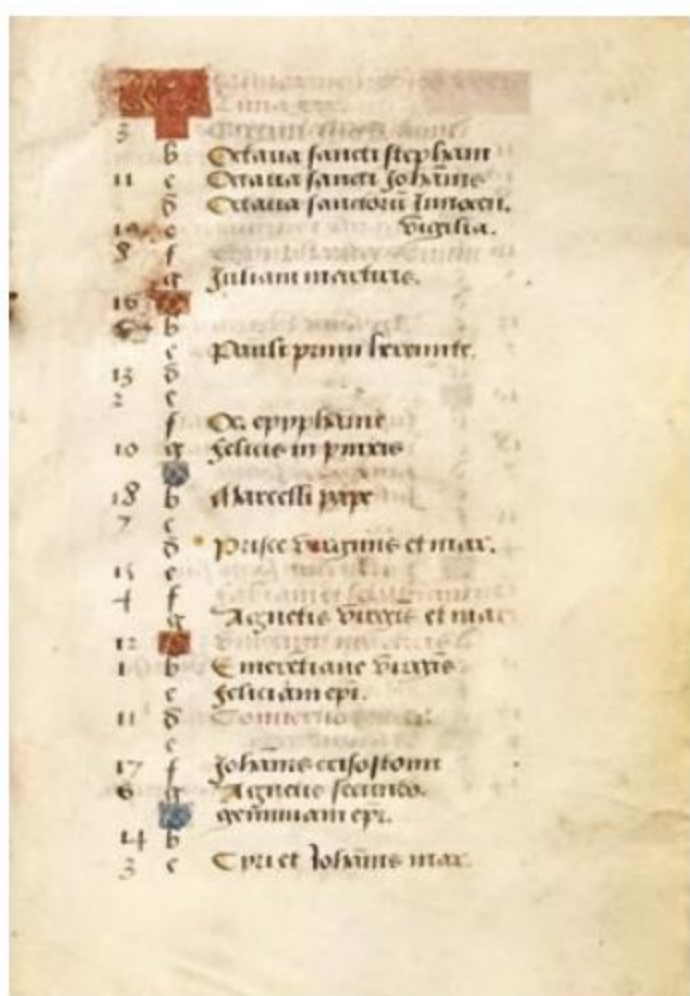 3
b Octaua sancti stephani
11 c Octaua sancti Johannis
d Octaua sanctorū Innocen.
e vigilia.
8 f
g Juliani marturis.
16
b
c Pauli primi heremite.
13 d
2 e
f Oc. epyphanie
10 g felicis in pincis
18 b Marcelli pape
7 c
d Prisce virginis et mar.
15 e
4 f
g Agnetis virgīs et mar
12
1 b Emerētiane virgīs
c feliciani epī.
11 d Conuersio
e
17 f Johānis crisostomi
6 g Agnetis secundo.
14 b
3 c Cyri et Johānis mar.